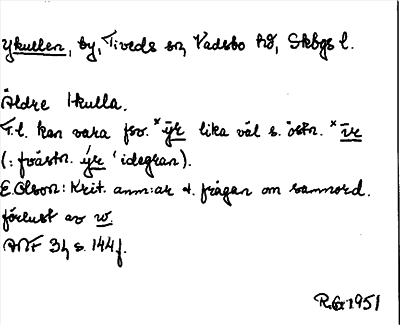 Ykullen, by, Tiveds sn, Vadsbo hd, Skbgs l.
Äldre Ikulla.
F.l. kan vara fsv. *ȳr lika väl s. östn. *īr
(: fvästn. ýr 'idegran).
E. Olson: Krit. anm:ar t. frågan om samnord.
förlust av w.
ANF 31, s. 144 f.
R.G. 1951